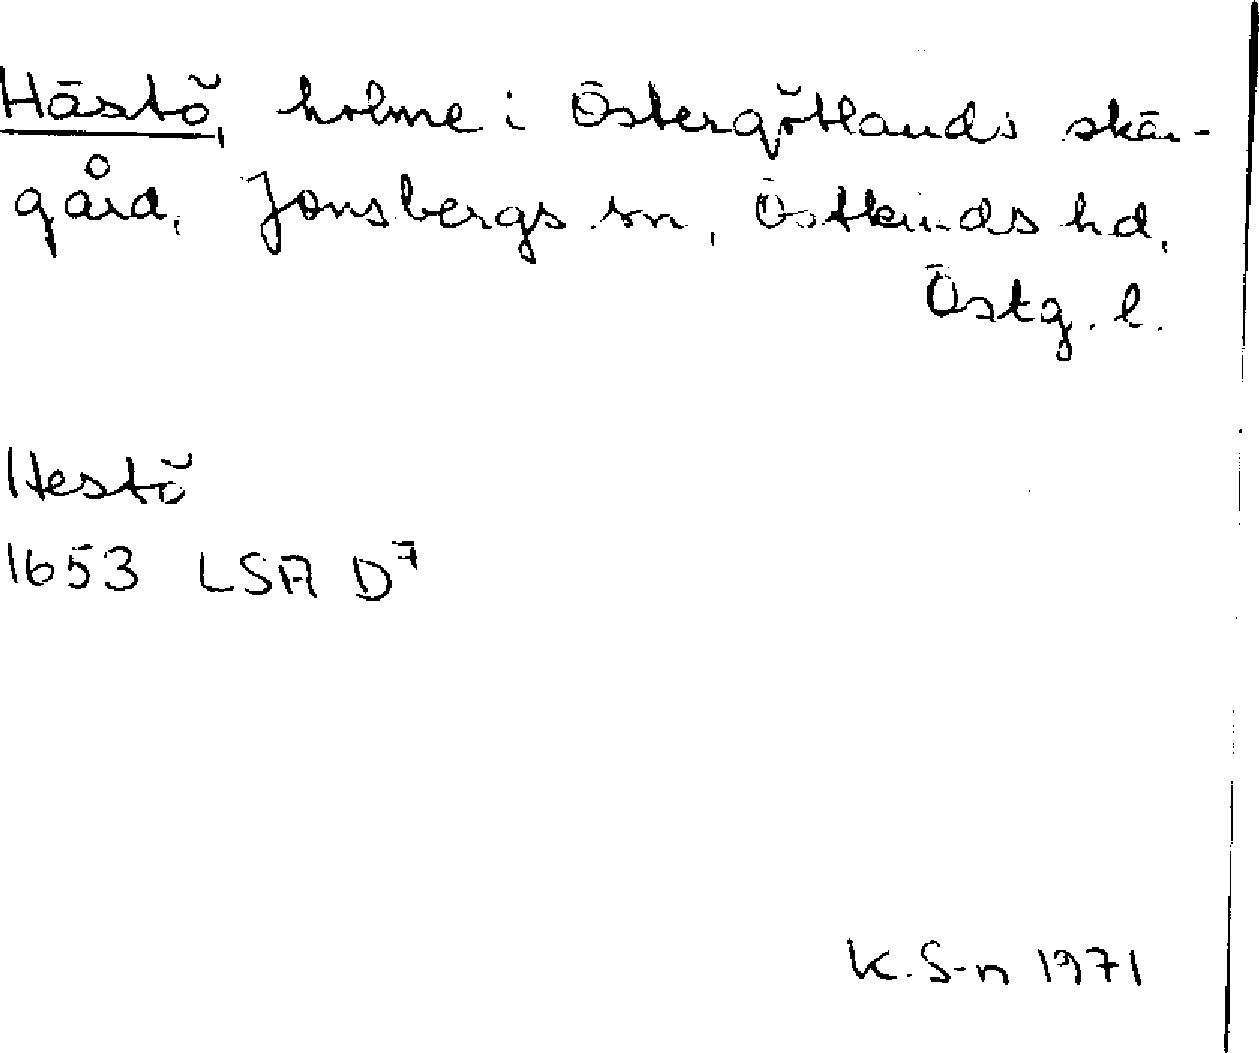 Hästö, holme i Östergötlands skär-
gård, Jonsbergs sn, Östkinds hd,
Östg. l.
Hestö
1653 LSA D⁷
K. S-n 1971